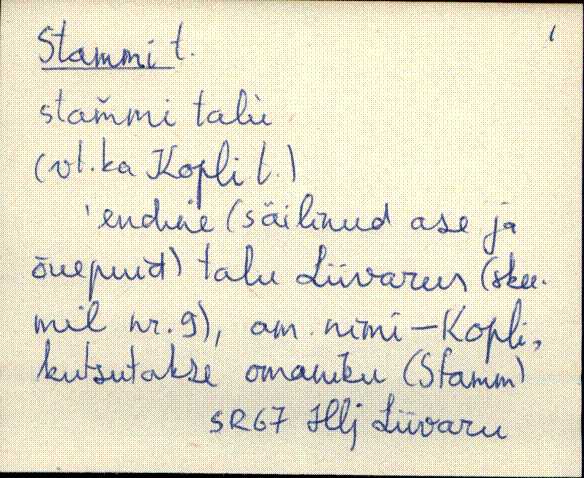 Stammi t. 1
stam̆mi talù
(vt. ka Kopli t.)
'endine (säilinud ase ja
õuepuid) talu Liivarus (skee-
mil nr. 9), am. nimi – Kopli,
kutsutakse omaniku (Stamm)
SR67 Hlj Liivaru